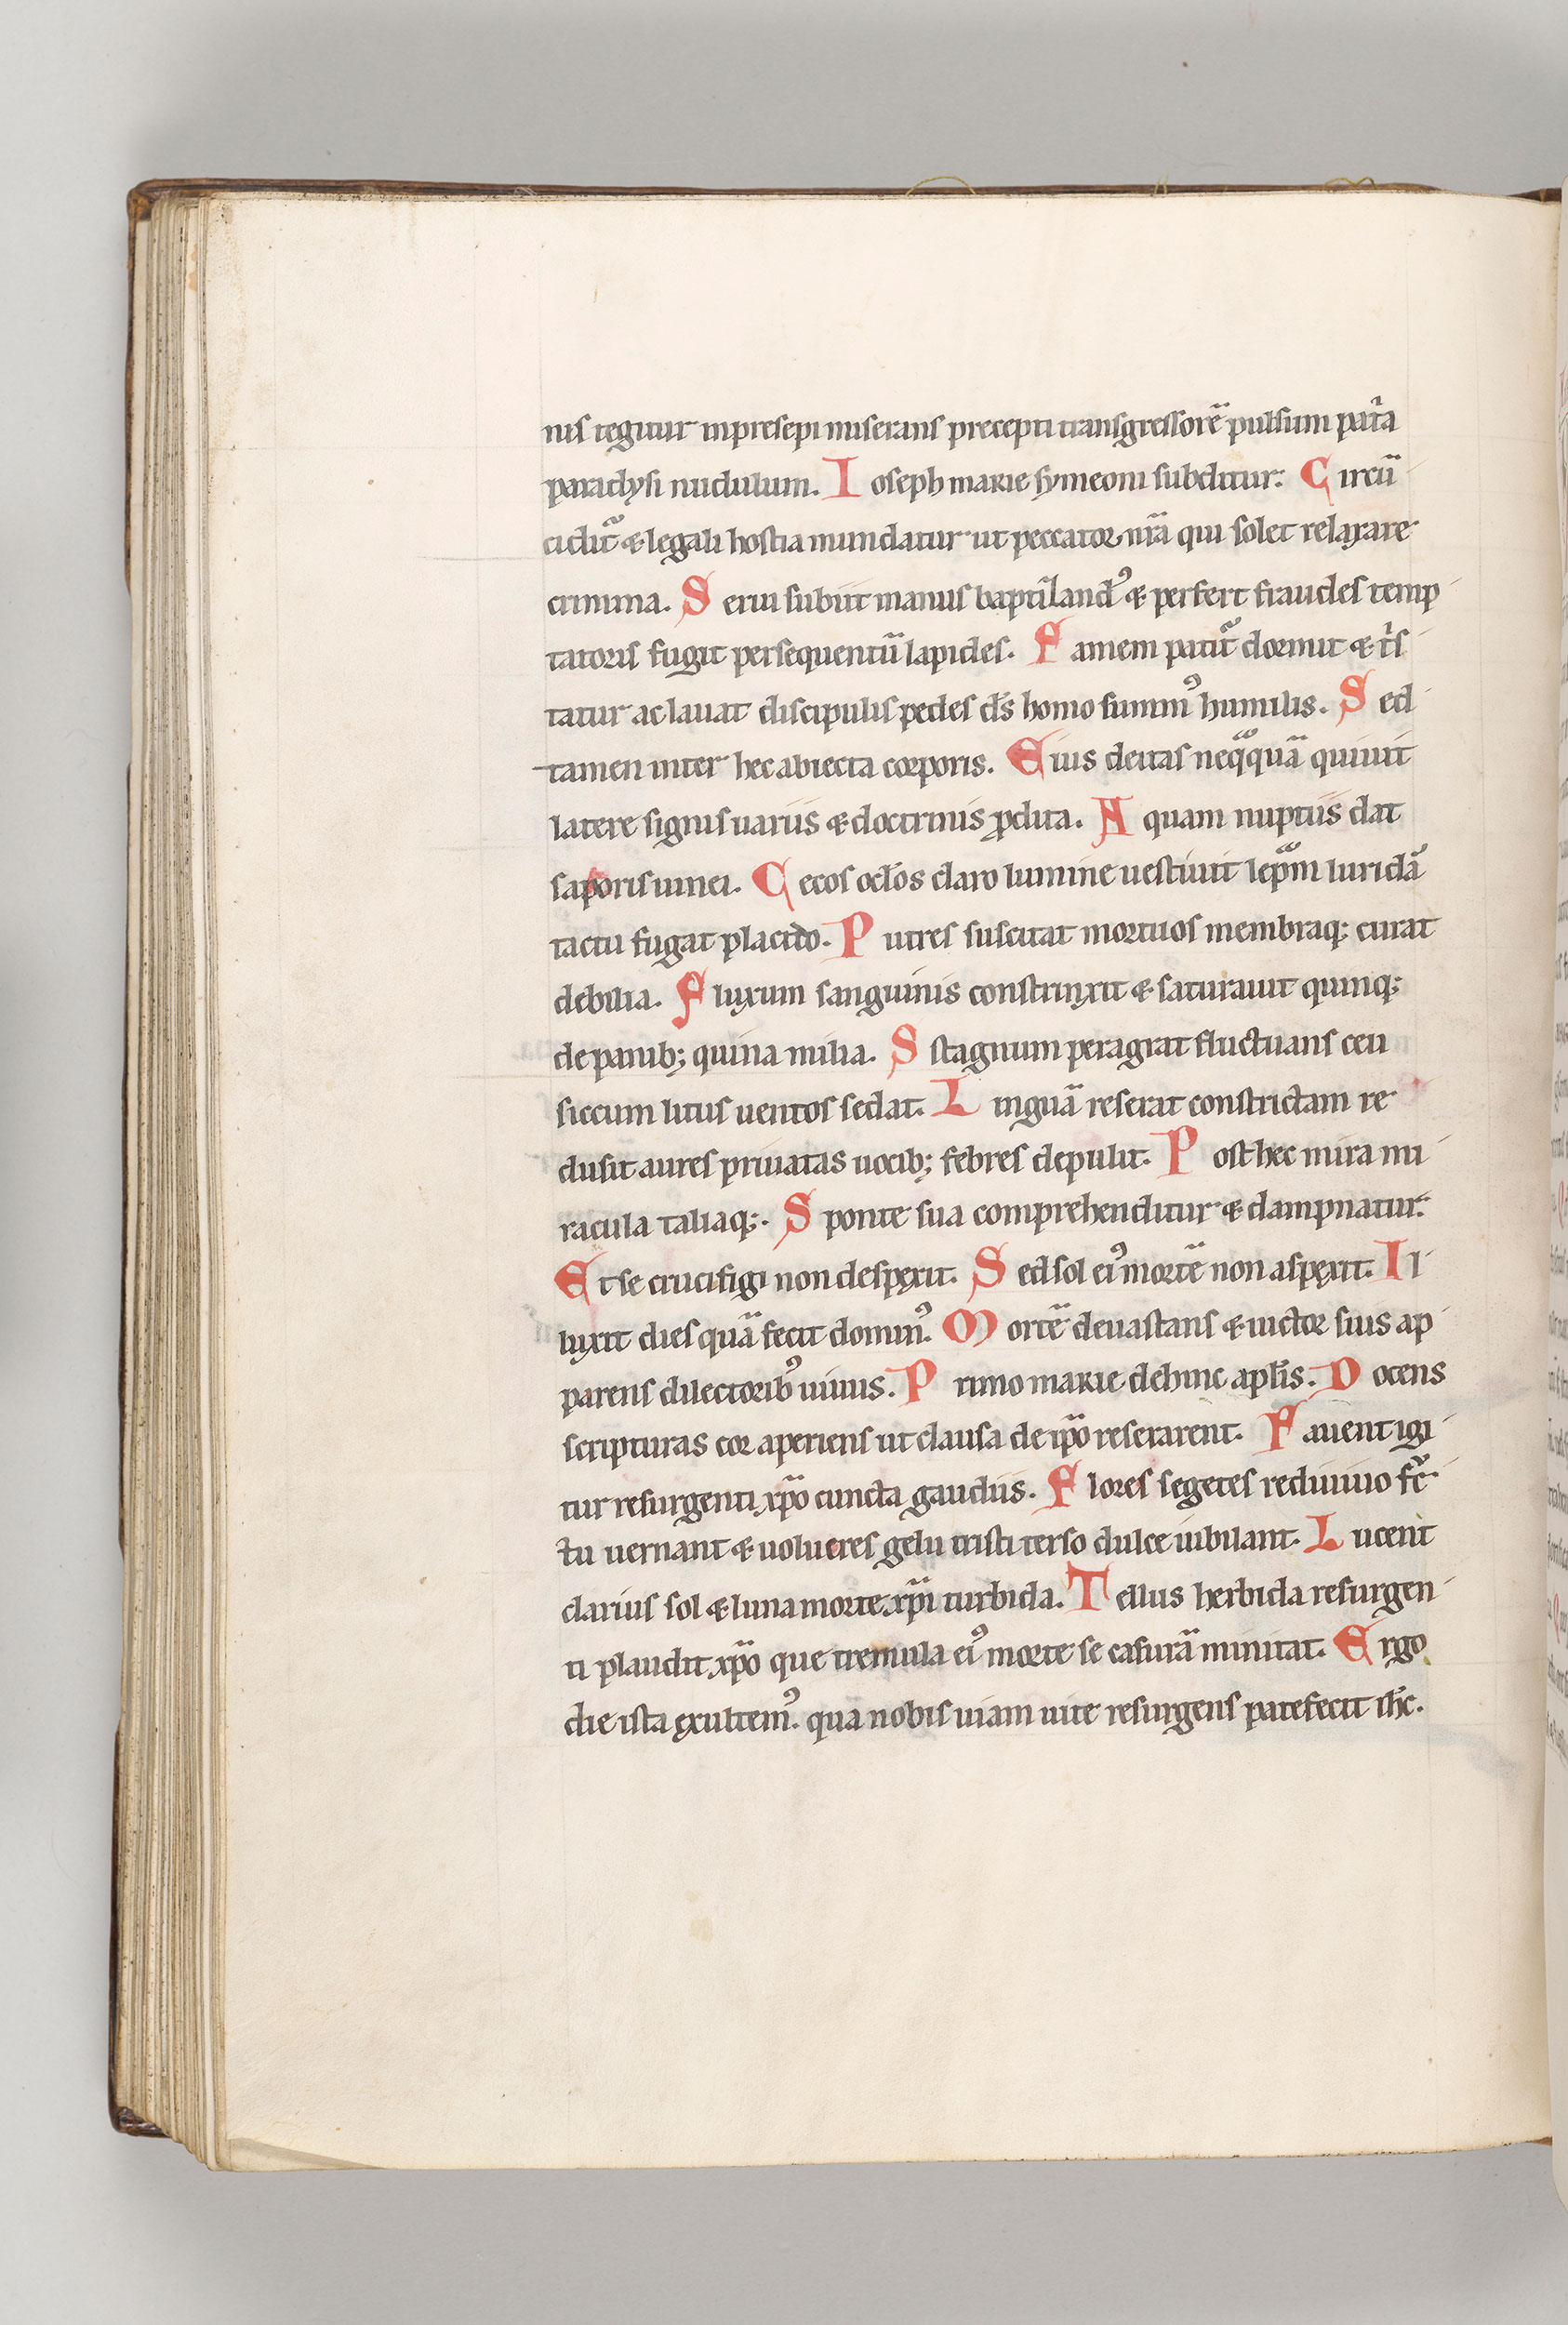 nis tegitur inpresepi miserans precepti transgressorē pulsum patͥa
paradysi nudulum. Ioseph marie symeoni subditur. Circū
cidit᷑ & legali hostia mundatur ut peccator nr̄a qui solet relaxare
crimina. Serui subiit manus baptizandꝰ & perfert fraudes temp
tatoris fugit persequentū lapides. Famem patit᷑ dormit & tͥs
tatur ac lauat discipulis pedes d̄s homo summꝰ humilis. Sed
tamen inter hec abiecta corporis. Eius deitas neqͣquā quiuit
latere signis uariis & doctrinis ꝓdita. Aquam nuptiis dat
saporis uinei. Cecos oc̄los claro lumine uestiuit lepͣm luridā
tactu fugat placido. Putres suscitat mortuos membraq; curat
debilia. Fluxum sanguinis constrinxit & saturauit quinq;
de panib; quina milia. Sstagnum peragrat fluctuans ceu
siccum litus uentos sedat. Linguā reserat constrictam re
clusit aures priuatas uocib; febres depulit. Post hec mira mi
racula taliaq;. Sponte sua comprehenditur & dampnatur.
Et se crucifigi non despexit. Sed sol eiꝰ mortē non aspexit. Il
luxit dies quā fecit dominꝰ. Mortē deuastans & uictor suis ap
parens dilectoribꝰ uiuus. Primo marie dehinc apl̄is. Docens
scripturas cor aperiens ut clausa de ip̄o reserarent. Fauent igi
tur resurgenti xp̄o cuncta gaudiis. Flores segetes rediuiuo fc̄
tu uernant & uolucres gelu tristi terso dulce iubilant. Lucent
clarius sol & luna morte xp̄i turbida. Tellus herbida resurgen
ti plaudit xp̄o que tremula eiꝰ morte se casurā minitat. Ergo
die ista exultemꝰ. qua nobis uiam uite resurgens patefecit ih̄c.